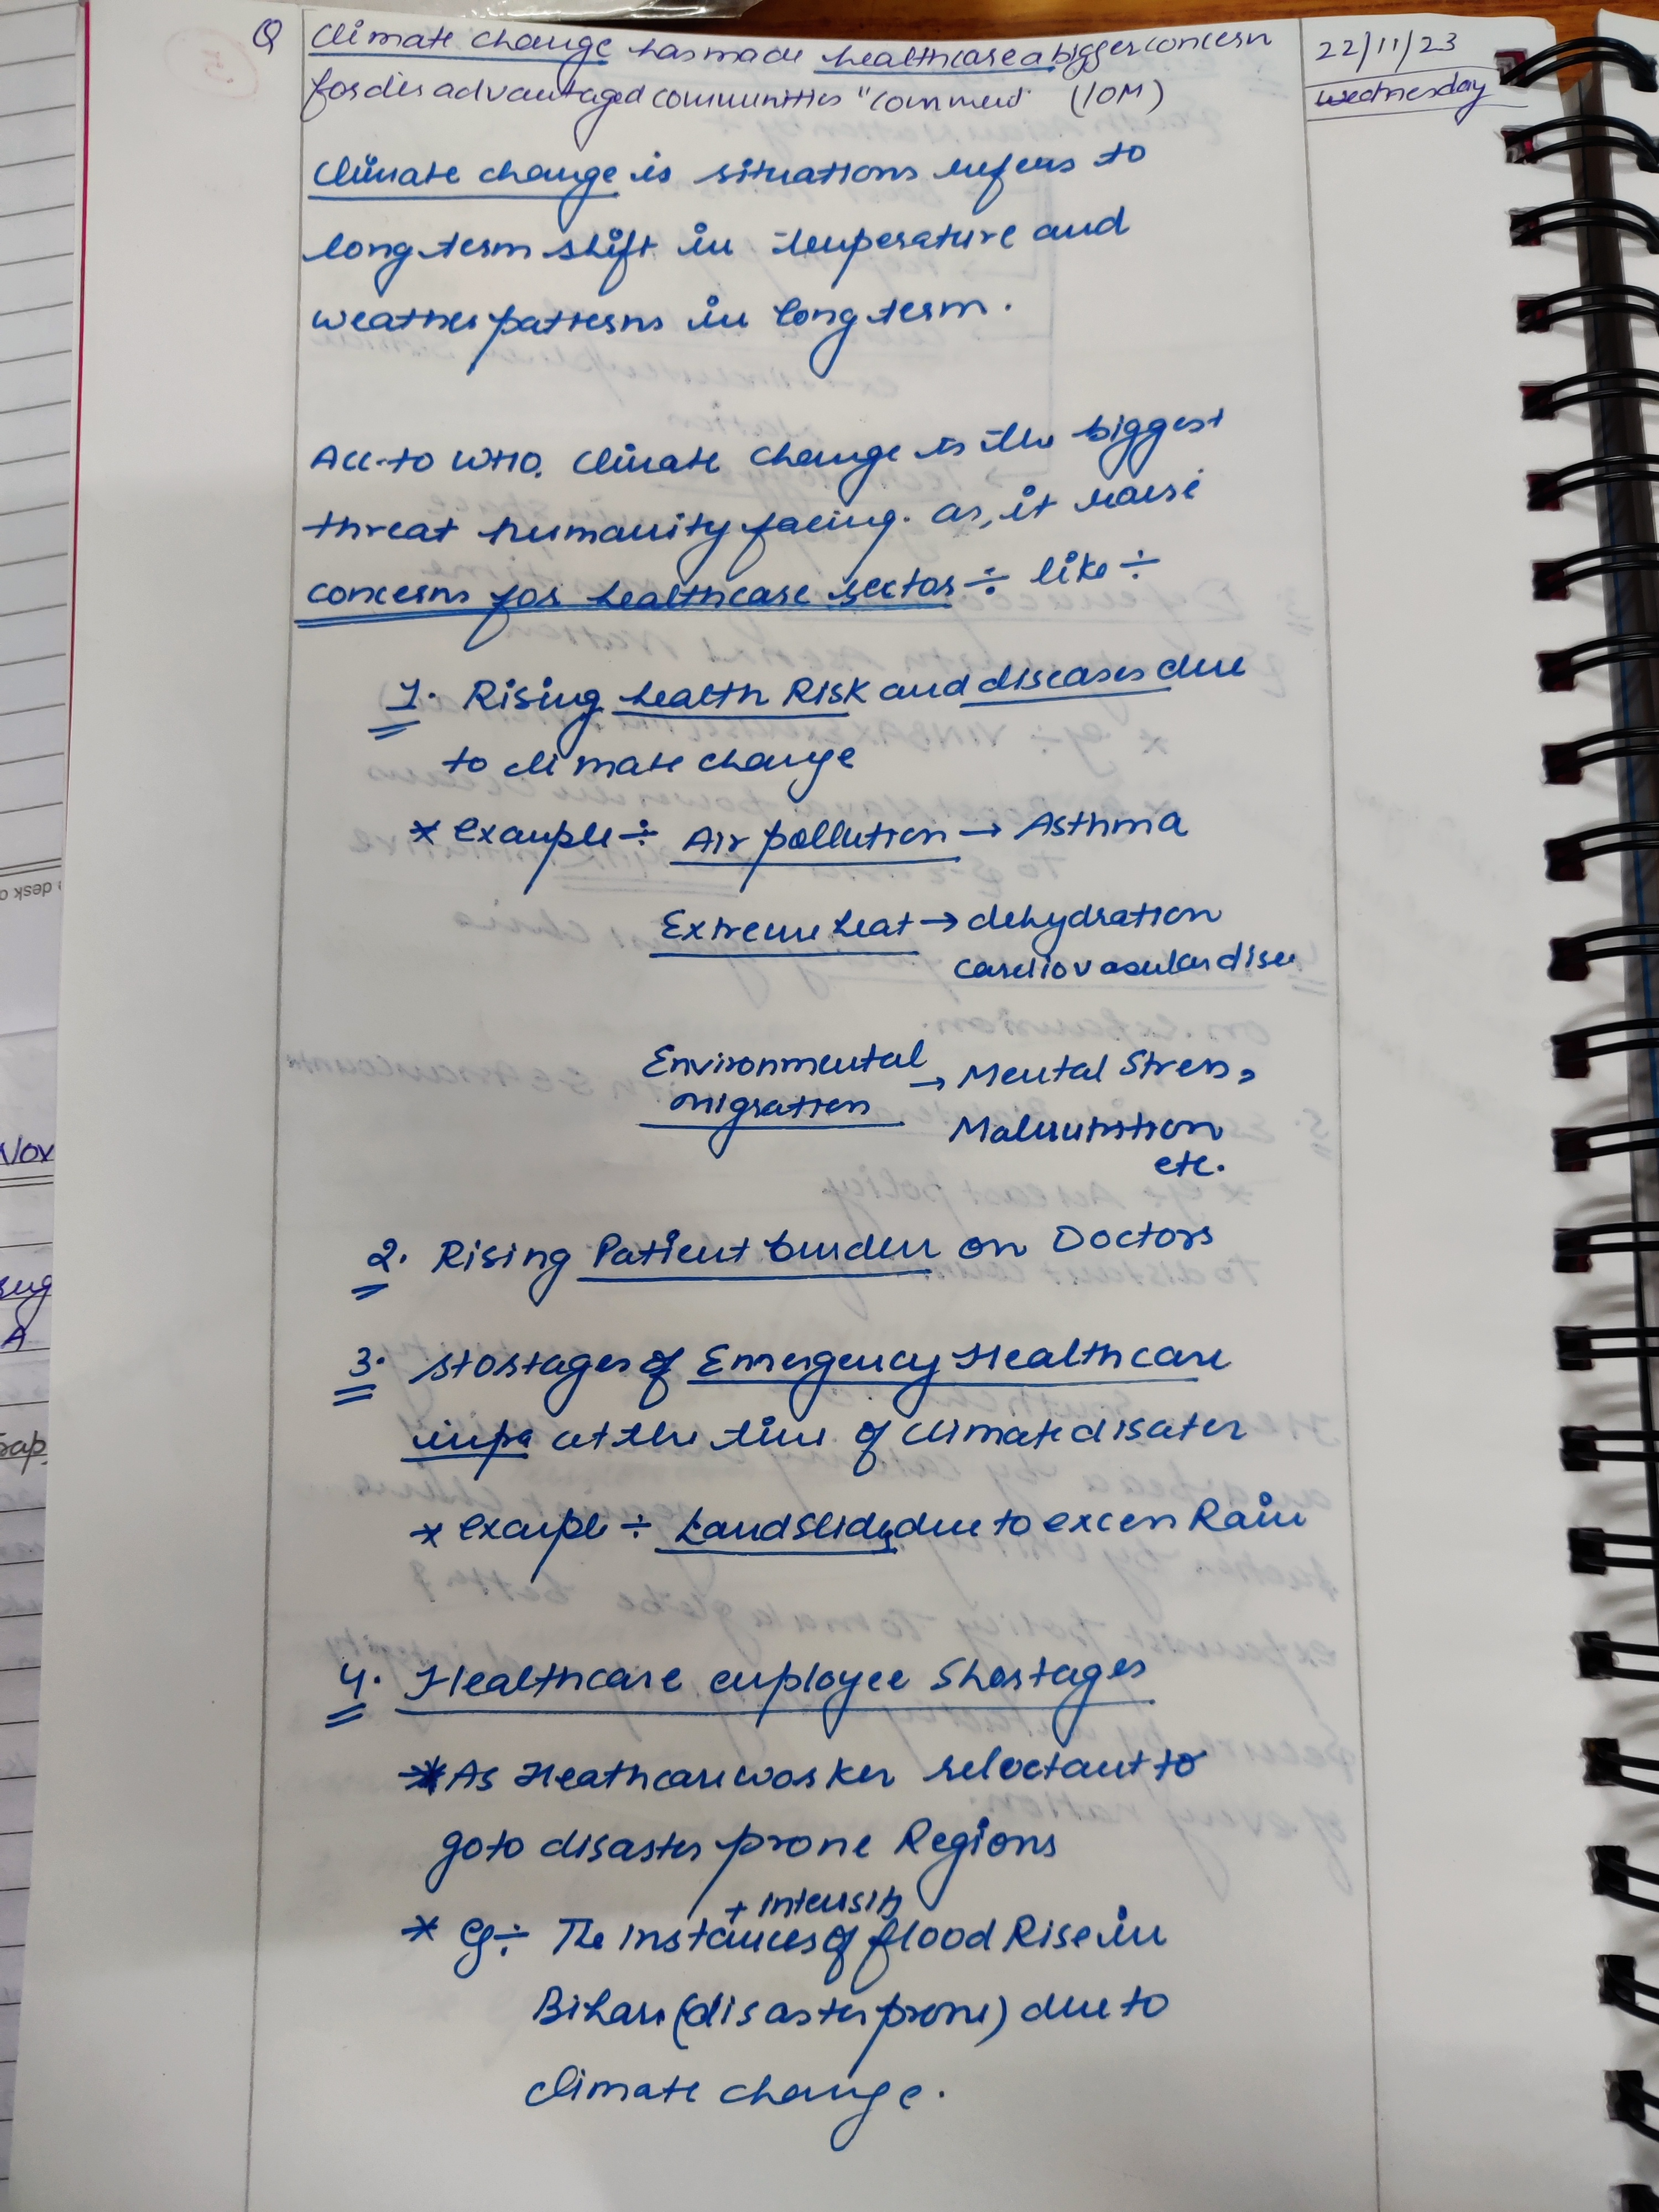 Q Climate change has made healthcare a bigger concern
for disadvantaged communities "comment" (10M)
22/11/23
Wednesday
Climate change is situations refers to
long term shift in temperature and
weather patterns in long term.
Acc. to WHO. Climate change is the biggest
threat humanity facing. as, it raise
concerns for healthcare sector ÷ like ÷
1. Rising health Risk and diseases due
to climate change
* example ÷ Air pollution → Asthma
Extreme heat → dehydration
cardiovascular dise
Environmental → Mental Stress,
migration
Malnutrition
etc.
2. Rising Patient burden on Doctors
3. stostages of Emergency Healthcare
inpa at the time of climate disater
* example ÷ Landslides due to excess Rain
4. Healthcare employee Shortages
* As Heathcare worker reloctant to
go to disaster prone Regions
+ intensity
* eg ÷ The instances of flood Rise in
Bihar (disaster prone) due to
climate change.
desk
Nov
A